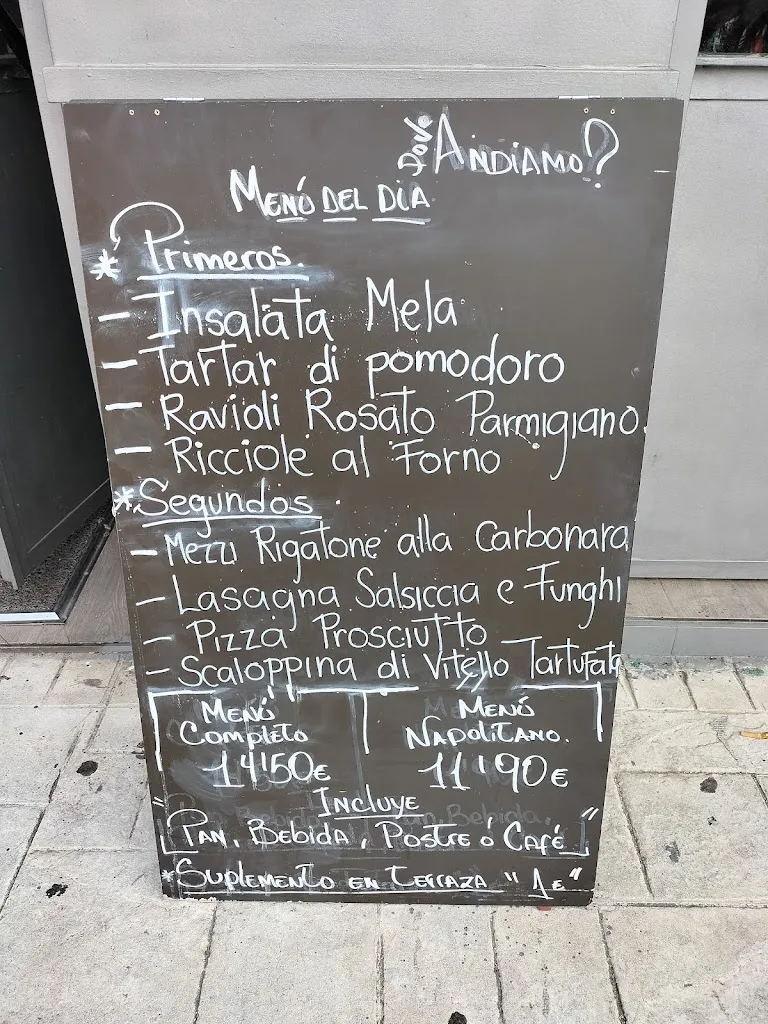 Dove Andiamo?
Menú del día
* Primeros.
- Insalata Mela
- Tartar di pomodoro
- Ravioli Rosato Parmigiano
- Ricciole al Forno
* Segundos.
- Mezzi Rigatone alla Carbonara
- Lasagna Salsiccia e Funghi
- Pizza Prosciutto
- Scaloppina di Vitello Tartufata
Menú Completo
14'50€
Menú Napolitano.
11'90€
Incluye
"Pan, Bebida, Postre ó Café"
*Suplemento en terraza "1€"